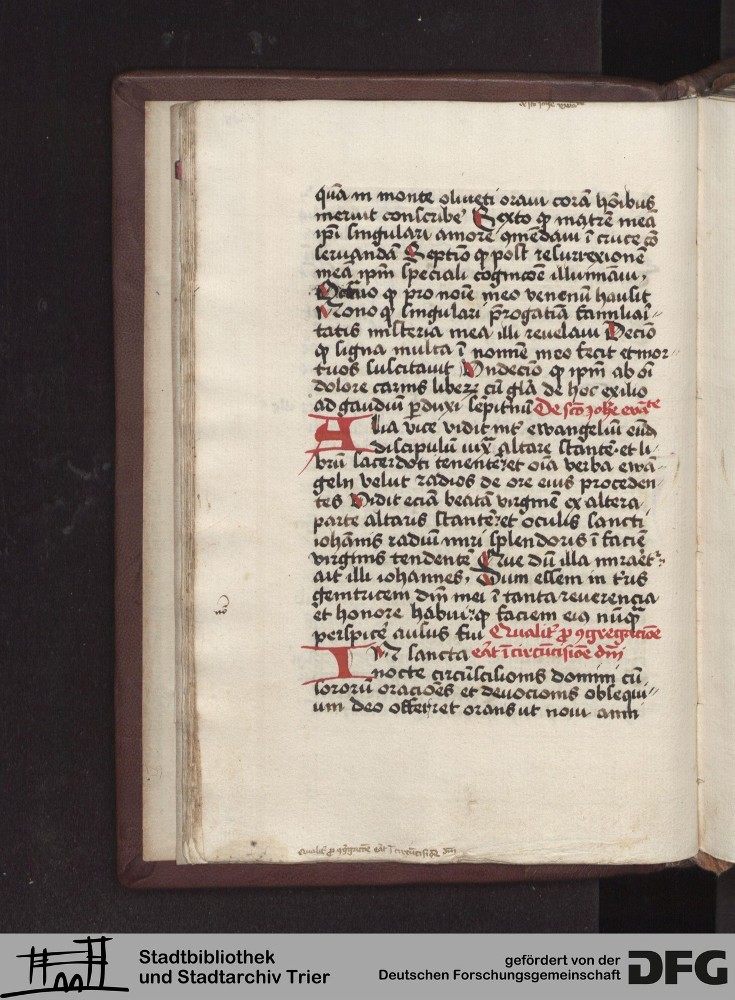 quā in monte oliueti oraui corā hōibus
meruit conscribe᷑ Sexto ꝙ matrē meā
ip̄i singulari amore ꝯmēdaui ī cruce ꝯ
seruandā Septīo ꝙ post resurrexionē
meā ip̄m speciali cognicōe illuminaui,
Octauo ꝙ pro noīe meo venenū hausit
Nono ꝙ singulari p̄rogatiā familiai-
tatis misteria mea illi reuelaui Decīo
ꝙ signa multa ī nomīe meo fecit et mor-
tuos suscitauit Vndecīo ꝙ ip̄m ab oī
dolore carnis liberū cū gl̄a de hoc exilio
ad gaudiū ꝑduxi sēpitnū De scō Johe ewāte
Alia vice vidit int᷑ ewangeliū eūd
discipulū iux᷑ altare stantē et li-
brū sacerdoti tenentē et oīa verba ewā-
gelij velut radios de ore eius proceden-
tes Vidit eciā beatā virginē ex altera
parte altaris stantē et oculis sancti
iohānis radiū miri splendoris ī faciē
virginis tendentē Que dū illa miraet᷑
ait illi iohannes, Dum essem in t᷑ris
genitricem dn̄i mei ī tanta reuerencia
et honore habui ꝙ faciem eiꝯ nūq̄
perspice᷑ ausus fui Qualit᷑ ꝓ ꝯgregacioē
IN sancta eāt ī circūcisiōe dn̄i
nocte circūscisionis domini cū
sororū oracioēs et deuocionis obsequi-
um deo offerret orans ut noui anni
Qualit᷑ ꝓ ꝯg̃gacōe eāt ī circūcisiōe dn̄i
Stadtbibliothek
und Stadtarchiv Trier
gefördert von der
Deutschen Forschungsgemeinschaft
DFG